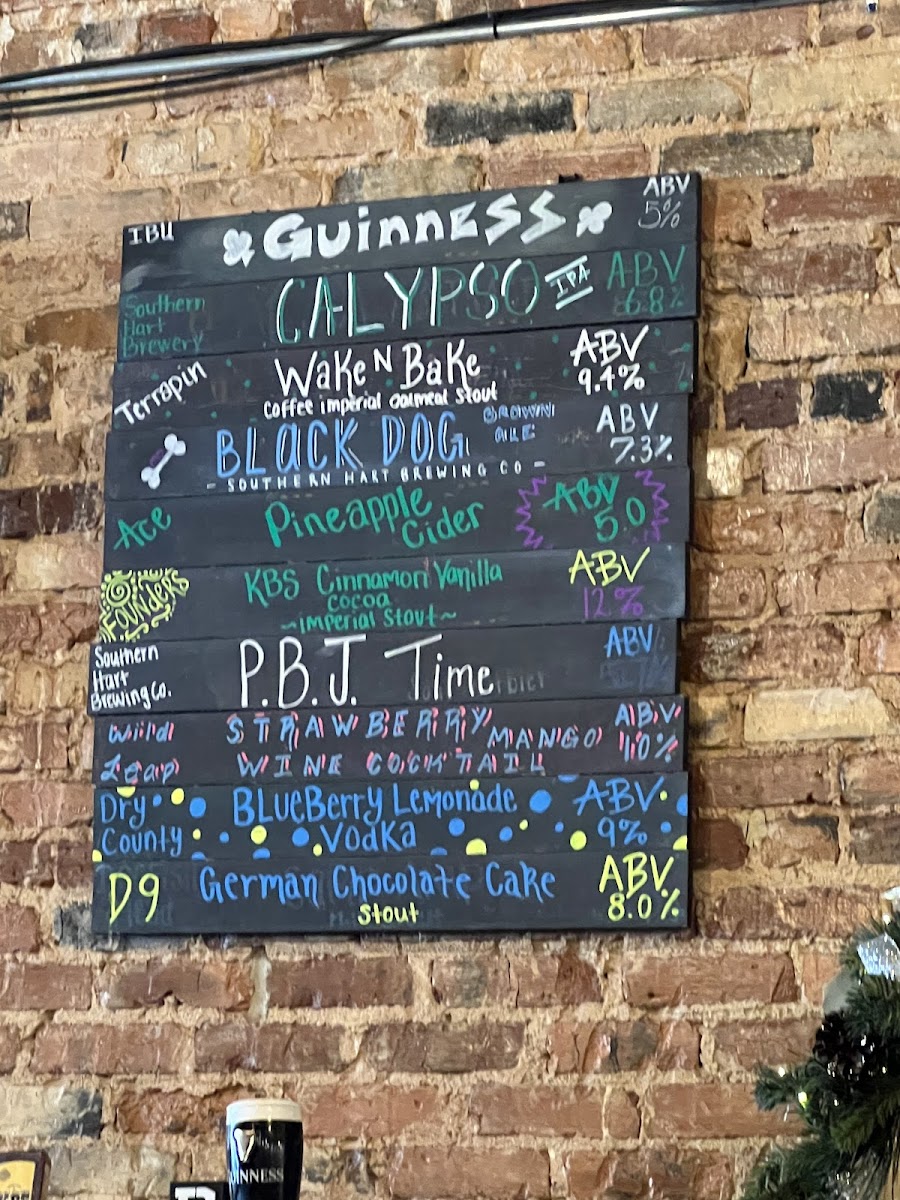 IBU GUINNESS ABV
5%
Southern Hart Brewery CALYPSO IPA ABV
6.8%
Terrapin Wake N Bake ABV
Coffee imperial oatmeal Stout 9.4%
BLACK DOG BROWN ALE ABV
- SOUTHERN HART BREWING CO - 7.3%
Ace Pineapple Cider ABV
5.0
FOUNDERS KBS Cinnamon Vanilla ABV
cocoa 12%
~imperial Stout~
Southern Hart Brewing Co. P.B.J. Time ABV
Wild STRAWBERRY MANGO ABV
Leap WINE COCKTAIL 10%
Dry BLUEBerry Lemonade ABV
County Vodka 9%
D9 German Chocolate Cake ABV
Stout 8.0%
GUINNESS